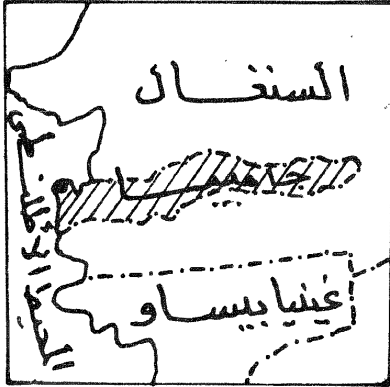 السنغال
غينيا بيساو
المحيط الأطلسي